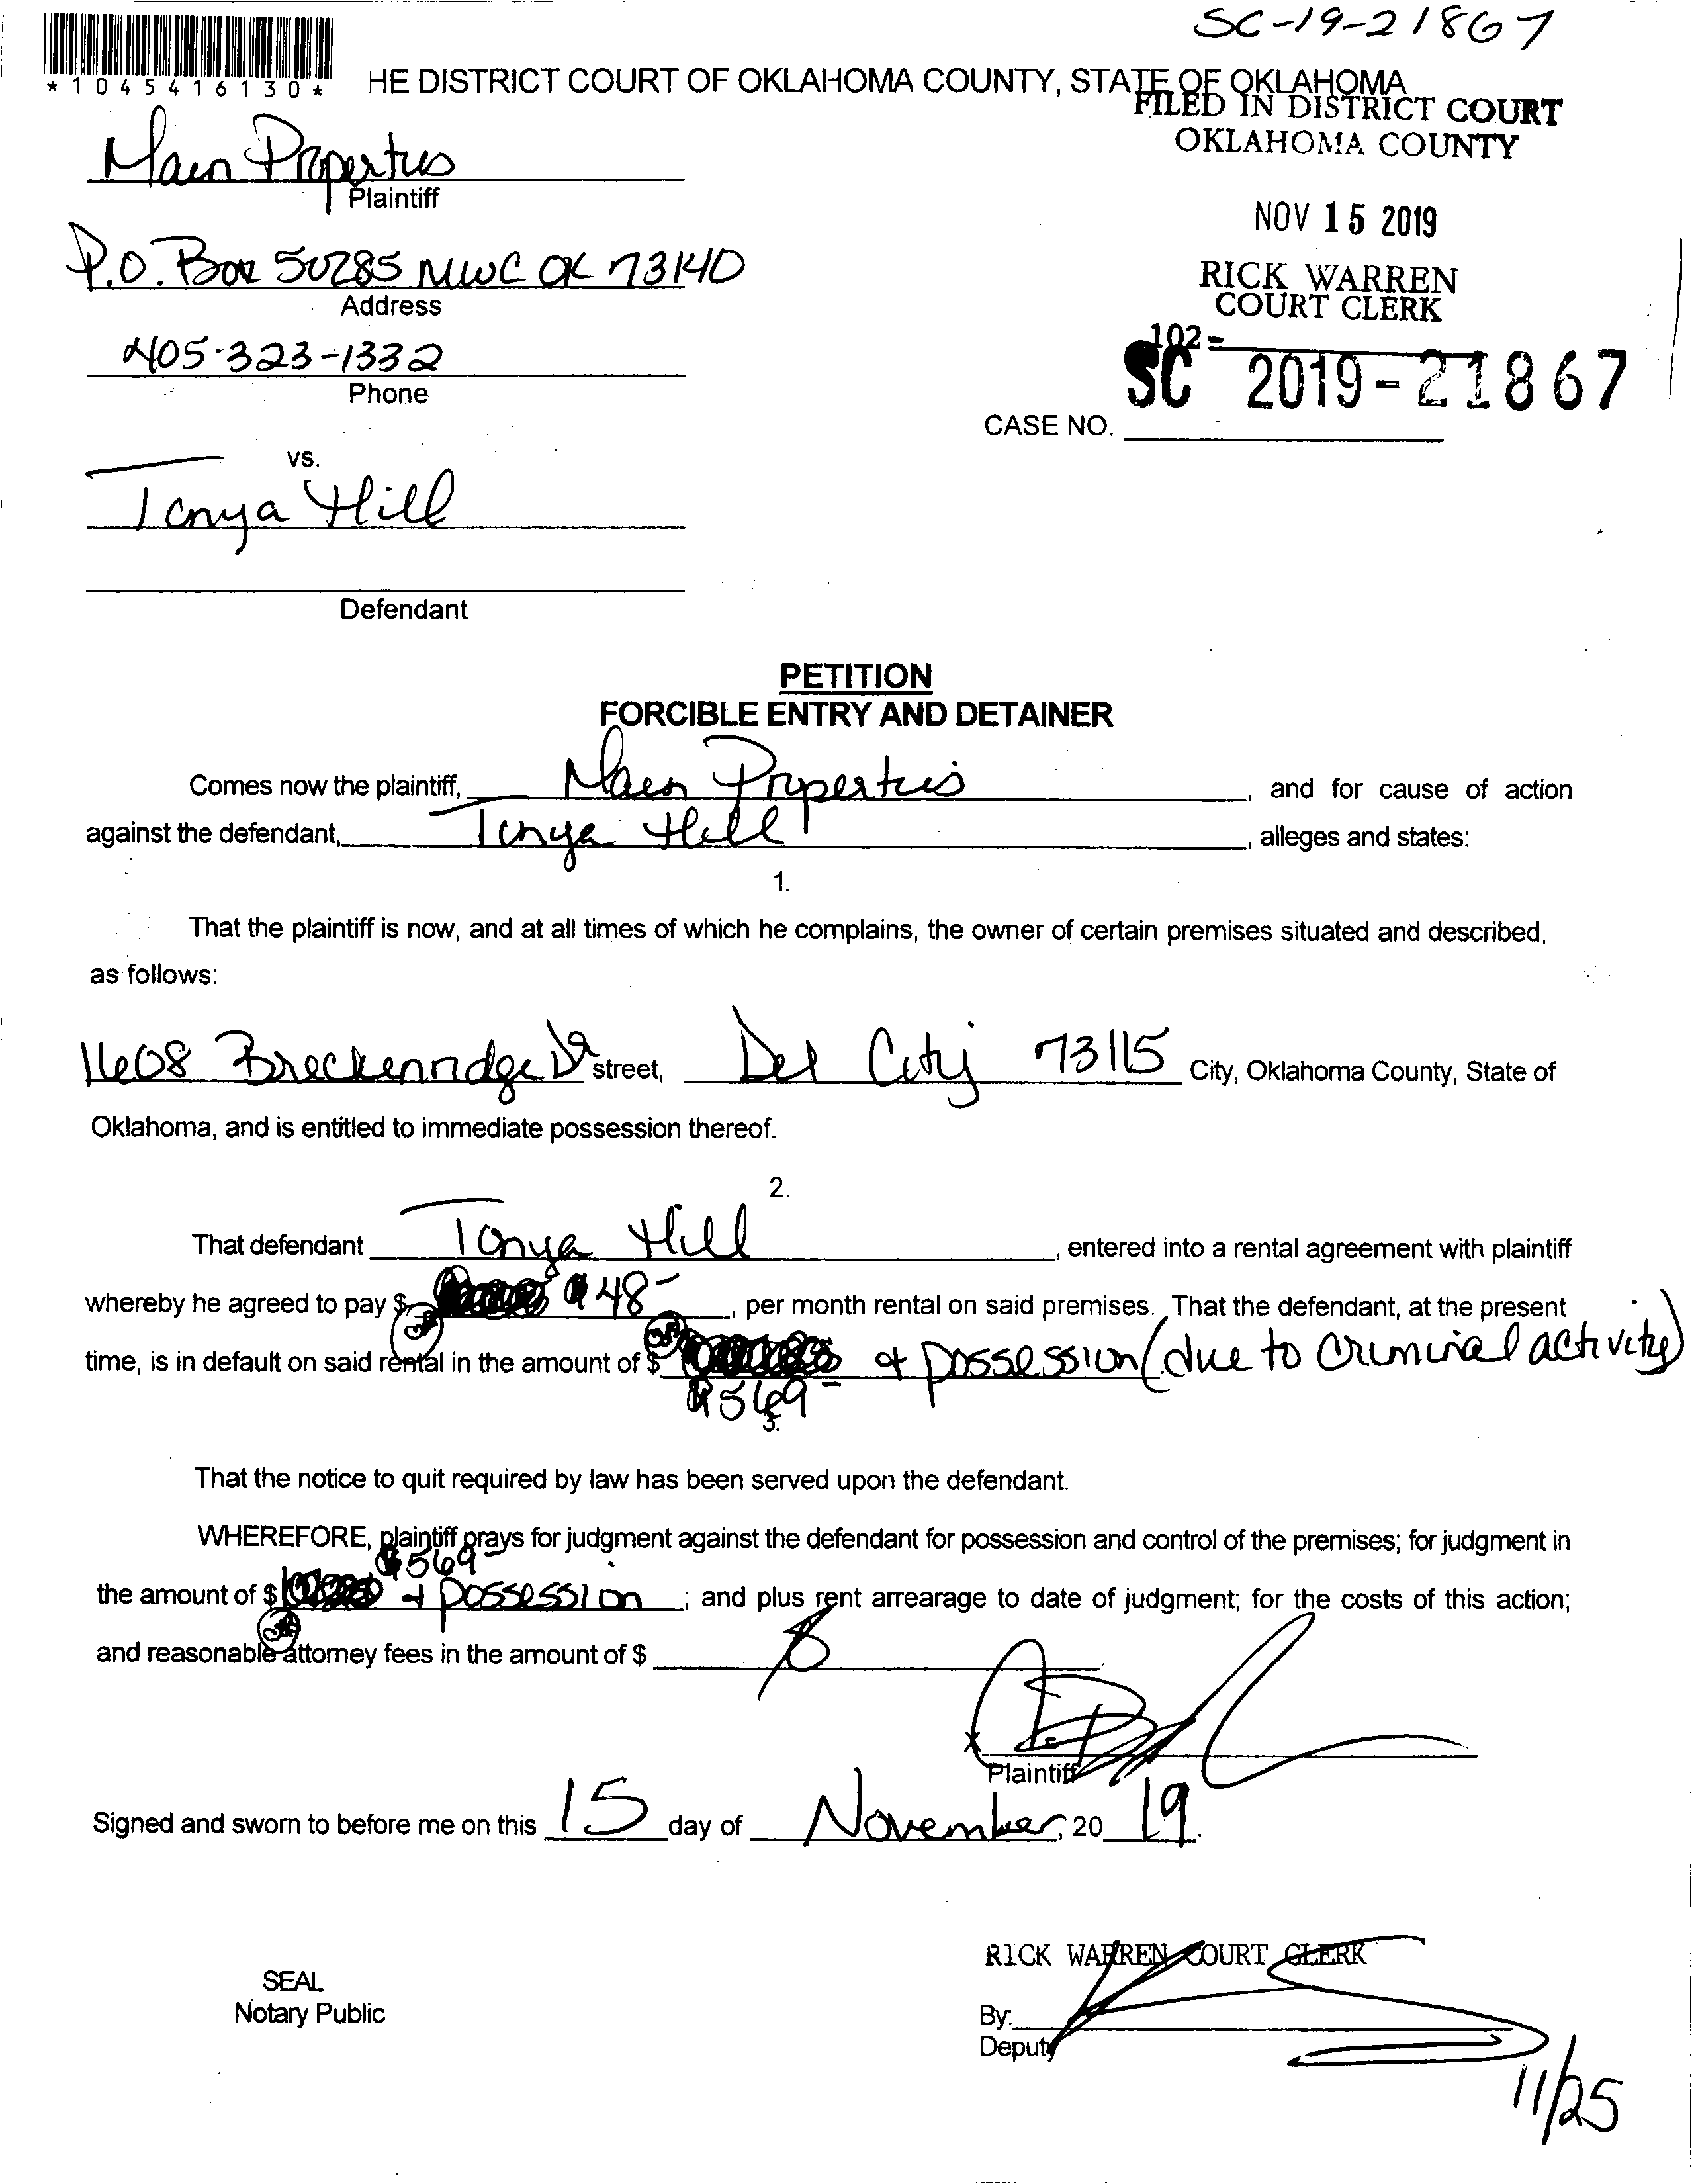 SC-19-21867
*1045416130*
HE DISTRICT COURT OF OKLAHOMA COUNTY, STATE OF OKLAHOMA
FILED IN DISTRICT COURT
OKLAHOMA COUNTY
Properties
Plaintiff
NOV 15 2019
P.O. Box 50285 MWC OK 73140
Address
RICK WARREN
COURT CLERK
405-323-1332
Phone
102-
SC 2019-21867
CASE NO.
vs.
Tonya Hill
Defendant
PETITION
FORCIBLE ENTRY AND DETAINER
Comes now the plaintiff, Properties, and for cause of action
against the defendant, Tonya Hill, alleges and states:
1.
That the plaintiff is now, and at all times of which he complains, the owner of certain premises situated and described,
as follows:
1608 Breckenridge Dr street, Del City 73115 City, Oklahoma County, State of
Oklahoma, and is entitled to immediate possession thereof.
2.
That defendant Tonya Hill, entered into a rental agreement with plaintiff
whereby he agreed to pay $ $48-, per month rental on said premises. That the defendant, at the present
time, is in default on said rental in the amount of $ + possession (due to criminal activity)
$569-
3.
That the notice to quit required by law has been served upon the defendant.
WHEREFORE, plaintiff prays for judgment against the defendant for possession and control of the premises; for judgment in
$569-
the amount of $ + possession; and plus rent arrearage to date of judgment; for the costs of this action;
and reasonable attorney fees in the amount of $
x
Plaintiff
Signed and sworn to before me on this 15 day of November, 20 19.
RICK WARREN COURT CLERK
SEAL
Notary Public
By:
Deputy
11/25